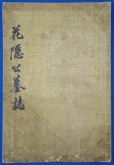 花隱公墓誌